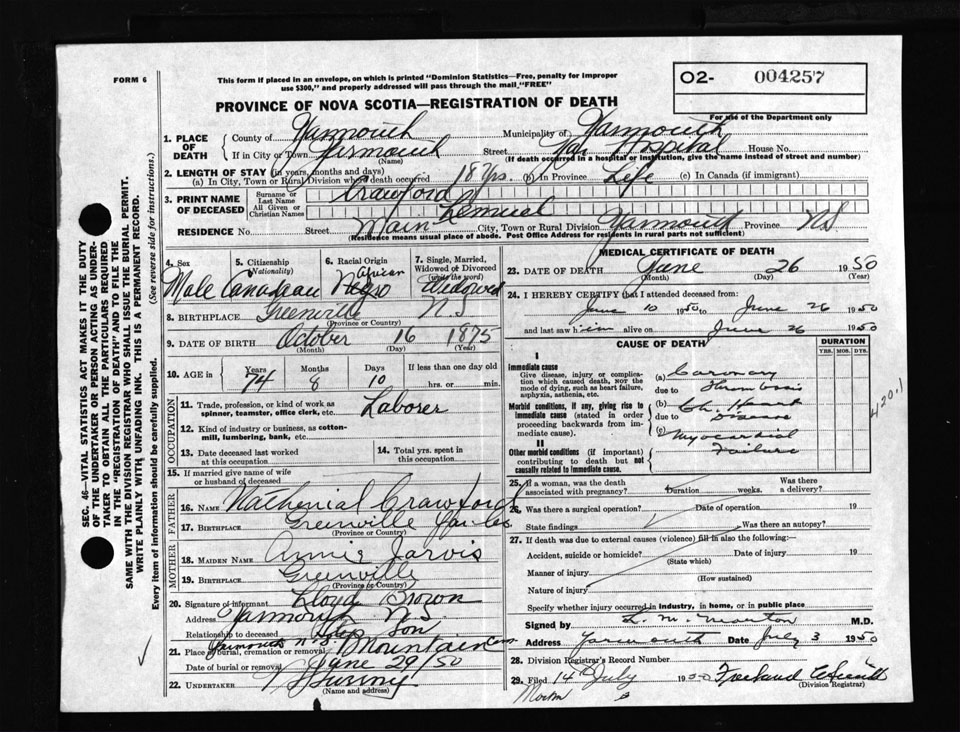 FORM 6
This form if placed in an envelope, on which is printed "Dominion Statistics—Free, penalty for improper
use $300," and properly addressed will pass through the mail, "FREE"
O2- 004257
For use of the Department only
PROVINCE OF NOVA SCOTIA—REGISTRATION OF DEATH
1. PLACE OF DEATH County of Yarmouth Municipality of Yarmouth
If in City or Town Yarmouth (Name) Street Yar. Hospital House No.
(If death occurred in a hospital or institution, give the name instead of street and number)
2. LENGTH OF STAY (in years, months and days)
(a) In City, Town or Rural Division where death occurred 18 Yrs. (b) In Province Life (c) In Canada (if immigrant)
3. PRINT NAME OF DECEASED Surname or Last Name Crawford
All Given or Christian Names Lemuel
RESIDENCE No. Street Main City, Town or Rural Division Yarmouth Province NS
(Residence means usual place of abode. Post Office Address for residents in rural parts not sufficient)
4. Sex Male
5. Citizenship (Nationality) Canadian
6. Racial Origin African Negro
7. Single, Married, Widowed or Divorced (write the word) Widowed
8. BIRTHPLACE Greenville N.S
(Province or Country)
9. DATE OF BIRTH October 16 1875
(Month) (Day) (Year)
10. AGE in Years 74 Months 8 Days 10 If less than one day old
hrs. or min.
OCCUPATION
11. Trade, profession, or kind of work as spinner, teamster, office clerk, etc. Laborer
12. Kind of industry or business, as cotton-mill, lumbering, bank, etc.
13. Date deceased last worked at this occupation
14. Total yrs. spent in this occupation
15. If married give name of wife or husband of deceased
FATHER
16. NAME Nathenial Crawford
17. BIRTHPLACE Greenville
(Province or Country)
MOTHER
18. MAIDEN NAME Annie Jarvis
19. BIRTHPLACE Greenville
(Province or Country)
20. Signature of informant Lloyd Brown
Address Yarmouth NS
Relationship to deceased Step Son
21. Place of burial, cremation or removal Yarmouth Mountain Cem
Date of burial or removal June 29/50
22. UNDERTAKER
(Name and address)
MEDICAL CERTIFICATE OF DEATH
23. DATE OF DEATH June 26 1950
(Month) (Day) (Year)
24. I HEREBY CERTIFY that I attended deceased from:
June 10 1950 to June 26 1950
and last saw him alive on June 26 1950
CAUSE OF DEATH
DURATION
YRS. MOS. DYS.
I
Immediate cause
Give disease, injury or complication which caused death, NOT the mode of dying, such as heart failure, asphyxia, asthenia, etc.
(a) Coronary
due to Thrombosis
Morbid conditions, if any, giving rise to immediate cause (stated in order proceeding backwards from immediate cause).
(b) Ch. Heart
due to Disease
(c) Myocardial
Failure
420.1
II
Other morbid conditions (if important) contributing to death but not causally related to immediate cause.
25. If a woman, was the death associated with pregnancy? Duration weeks. Was there a delivery?
26. Was there a surgical operation? Date of operation 19
State findings Was there an autopsy?
27. If death was due to external causes (violence) fill in also the following:
Accident, suicide or homicide? Date of injury 19
(State which)
Manner of injury
(How sustained)
Nature of injury
Specify whether injury occurred in industry, in home, or in public place
Signed by L. M. Morton M.D.
Address Yarmouth Date July 3 1950
28. Division Registrar's Record Number
29. Filed 14th July 1950
(Division Registrar)
SEC. 46—VITAL STATISTICS ACT MAKES IT THE DUTY
OF THE UNDERTAKER OR PERSON ACTING AS UNDER-
TAKER TO OBTAIN ALL THE PARTICULARS REQUIRED
IN THE "REGISTRATION OF DEATH" AND TO FILE THE
SAME WITH THE DIVISION REGISTRAR WHO SHALL ISSUE THE BURIAL PERMIT.
WRITE PLAINLY WITH UNFADING INK. THIS IS A PERMANENT RECORD.
Every item of information should be carefully supplied. (See reverse side for instructions.)